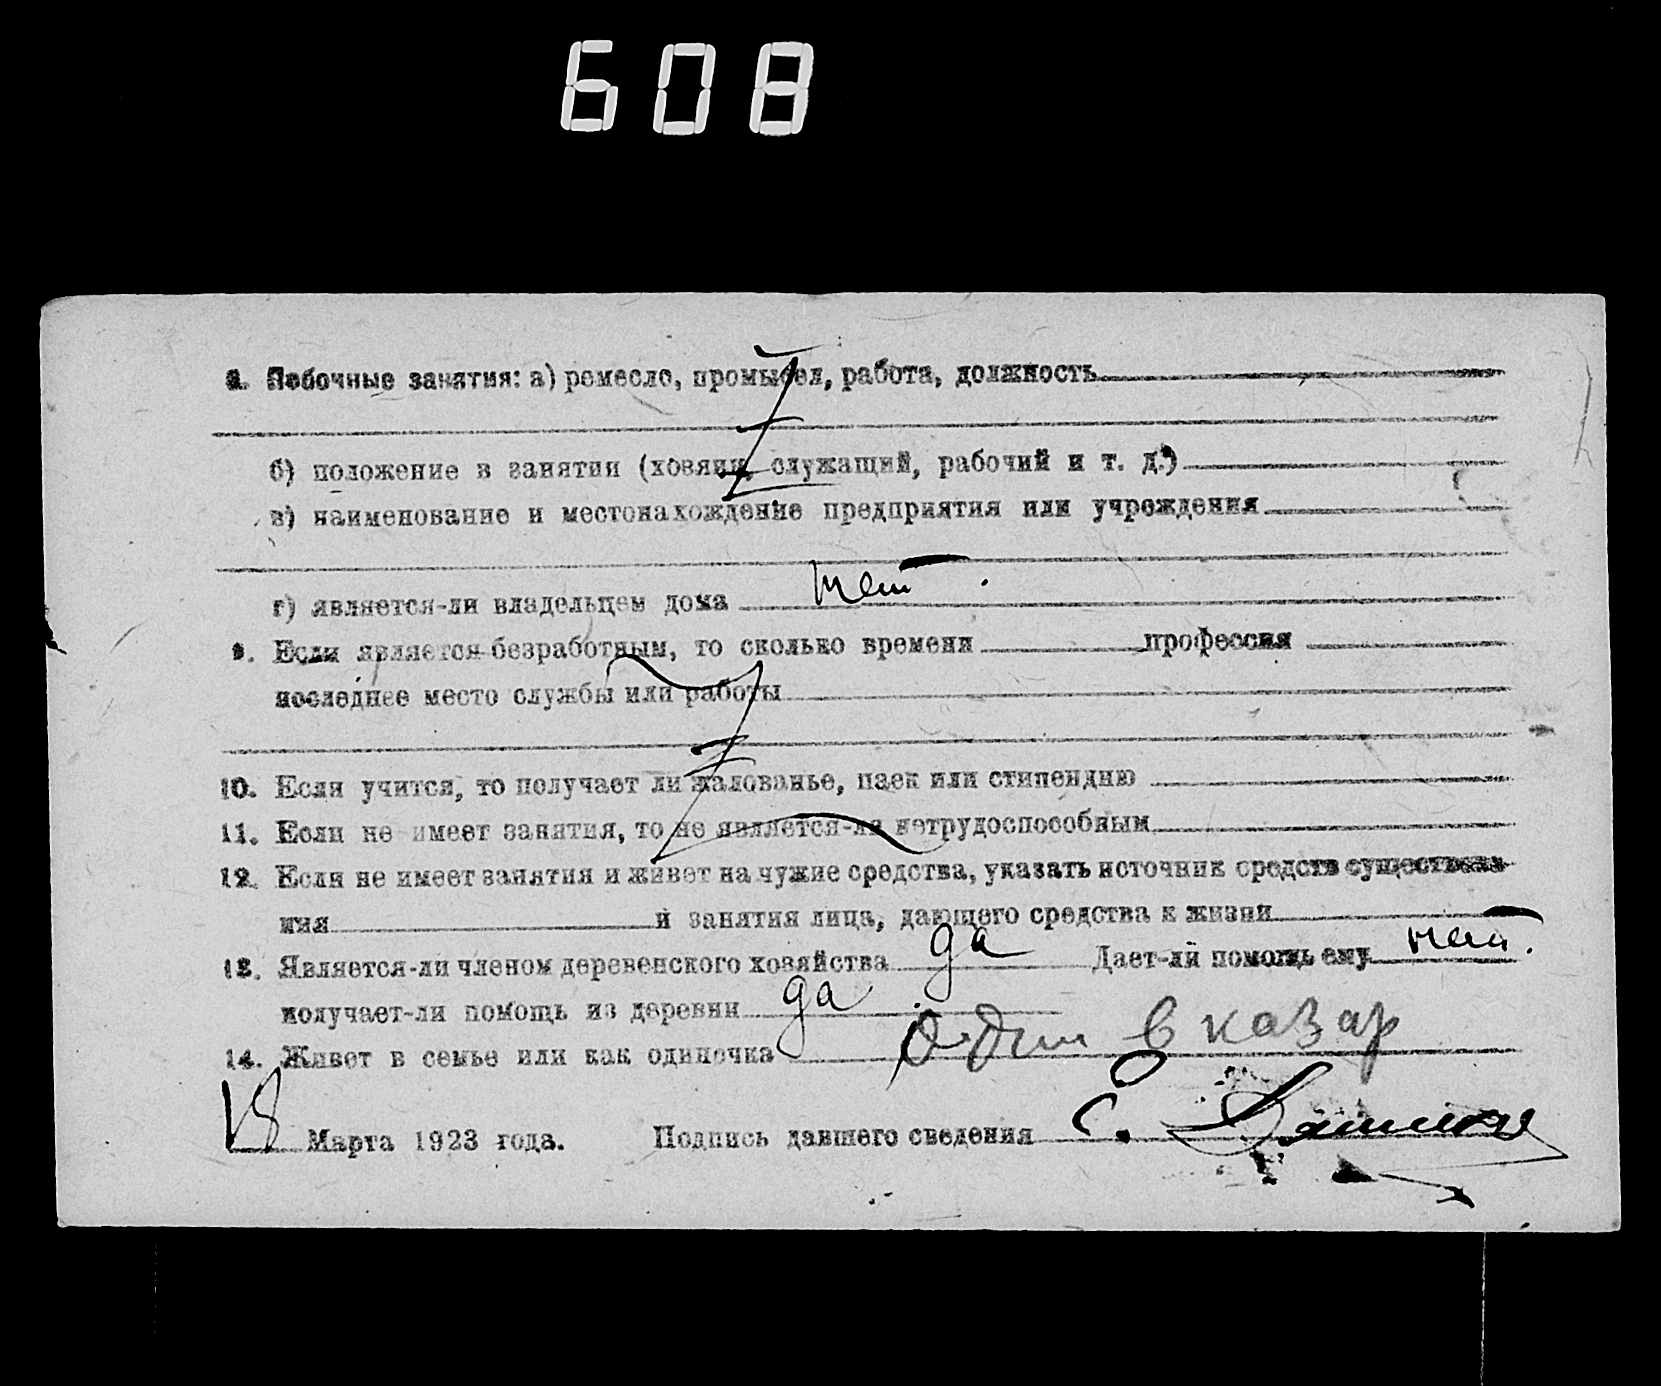 608
8. Побочные занятия: а) ремесло, промысел, работа, должность
б) положение в занятии (хозяин, служащий, рабочий и т. д.)
в) наименование и местонахождение предприятия или учреждения
г) является-ли владельцем дома нет.
9. Если является безработным, то сколько времени профессия
последнее место службы или работы
10. Если учится, то получает ли жалованье, паек или стипендию
11. Если не имеет занятия, то не является-ли нетрудоспособным
12. Если не имеет занятия и живет на чужие средства, указать источник средств существова-
ния и занятия лица, дающего средства к жизни
13. Является-ли членом деревенского хозяйства да Дает-ли помощь ему нет.
получает-ли помощь из деревни да
14. Живет в семье или как одиночка один в казар
18 Марта 1923 года. Подпись давшего сведения С.